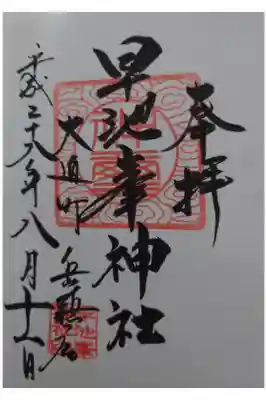 奉拝
早池峯神社
大迫町
岳鎮座
平成二十八年八月十一日